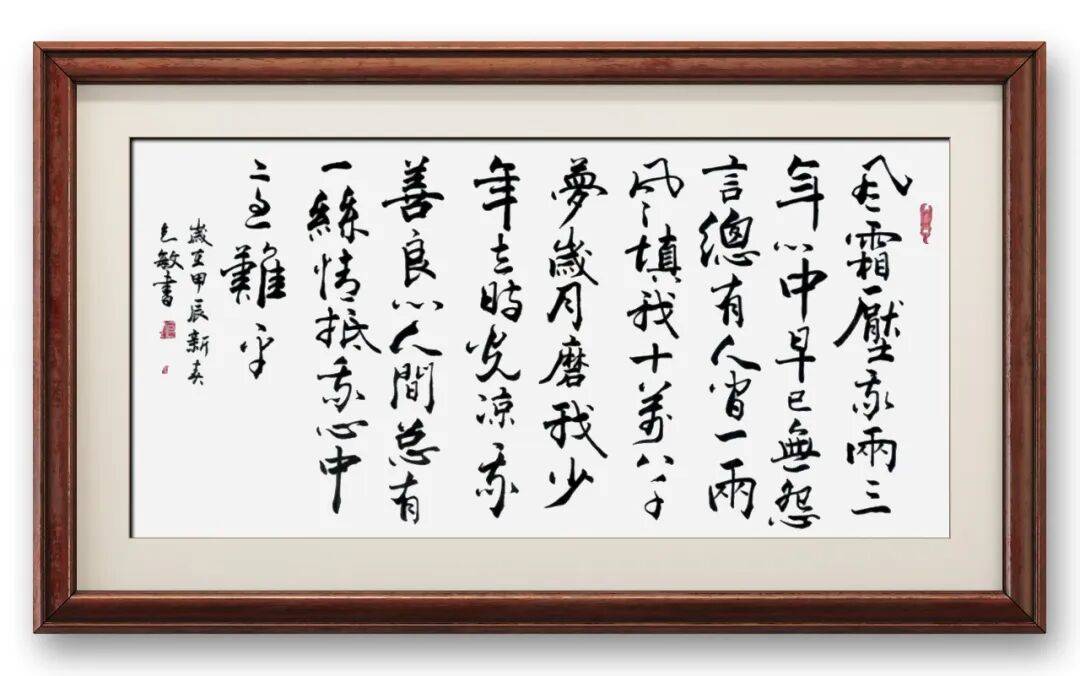 风霜壓我兩三
年心中早已無怨
言總有人间一兩
风填我十萬八千
夢歲月磨我少
年志時光凉我
善良心人間总有
一絲情抵我心中
意難平
歲在甲辰新春
敏書